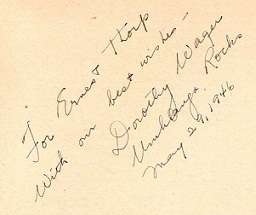 For Ernest Thorp
With our best wishes –
Dorothy Wager
Umhlanga Rocks
May 29, 1946